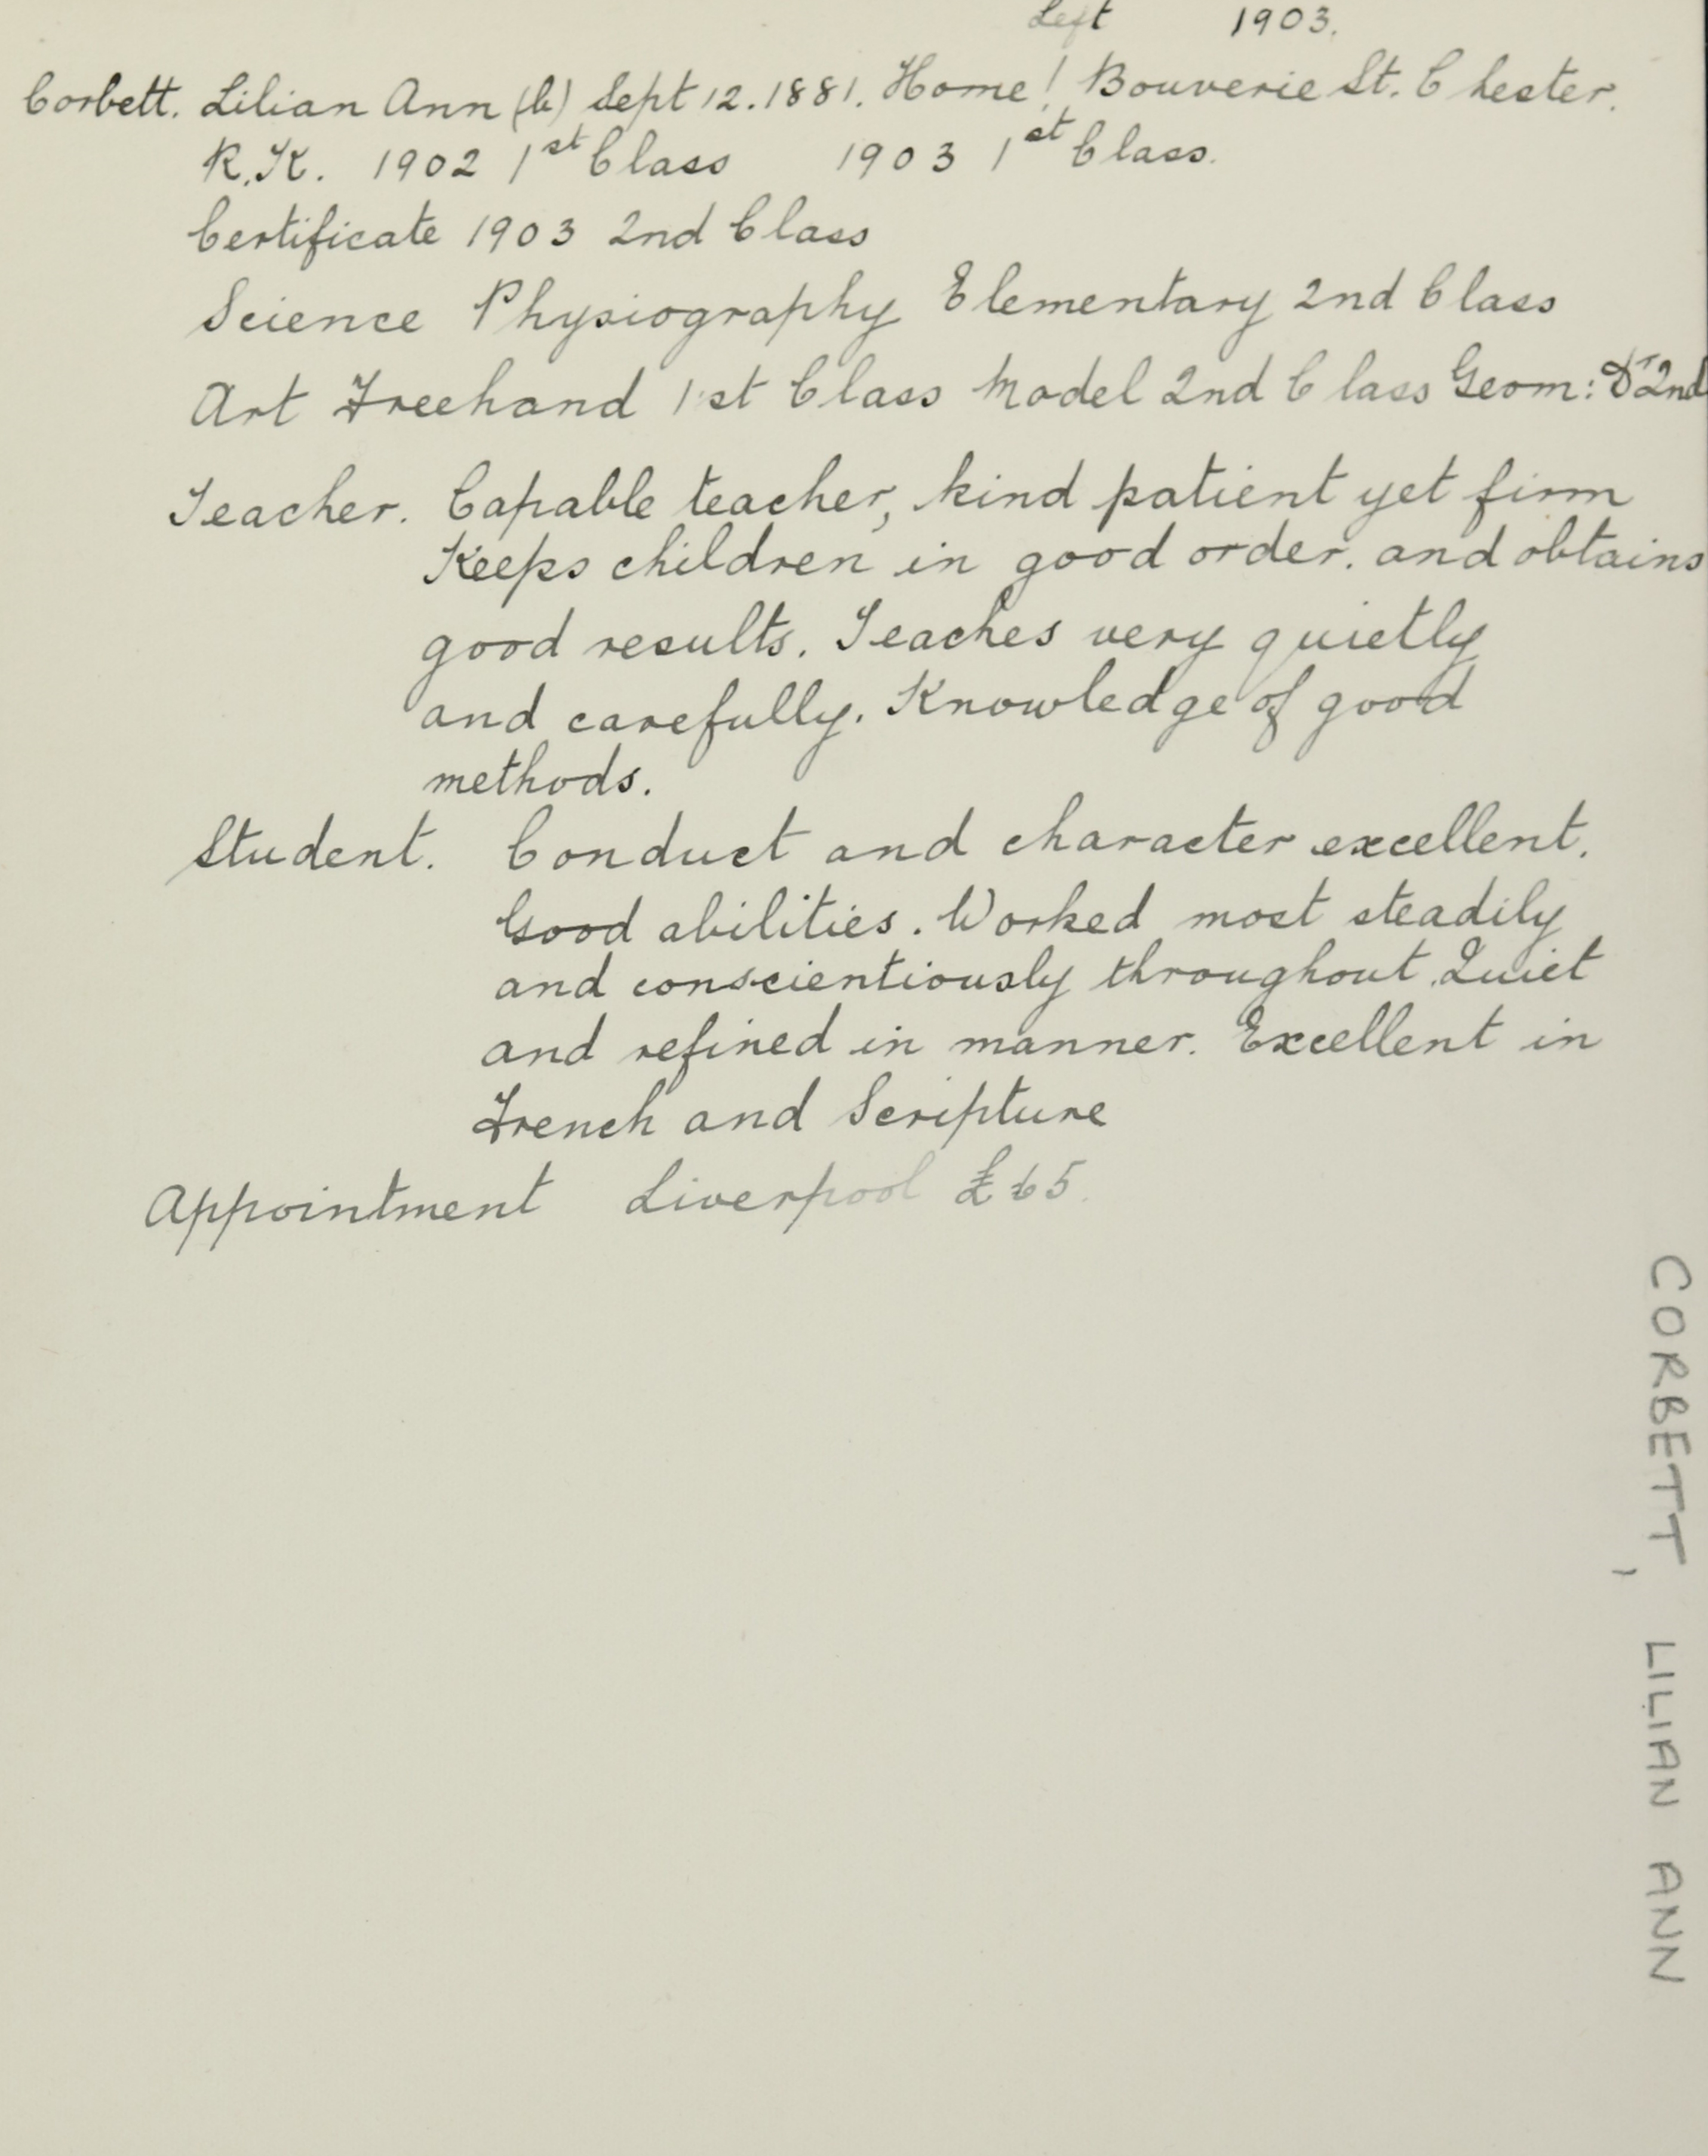 Left 1903.
Corbett. Lilian Ann (b) Sept 12. 1881. Home! Bouverie St. Chester.
R.K. 1902 1st Class 1903 1st Class.
Certificate 1903 2nd Class
Science Physiography Elementary 2nd Class
Art Freehand 1st Class Model 2nd Class Geom: Dr 2nd
Teacher. Capable teacher, kind patient yet firm
Keeps children in good order. and obtains
good results. Teaches very quietly
and carefully. Knowledge of good
methods.
Student. Conduct and character excellent.
Good abilities. Worked most steadily
and conscientiously throughout. Quiet
and refined in manner. Excellent in
French and Scripture
Appointment Liverpool £65.
CORBETT, LILIAN ANN